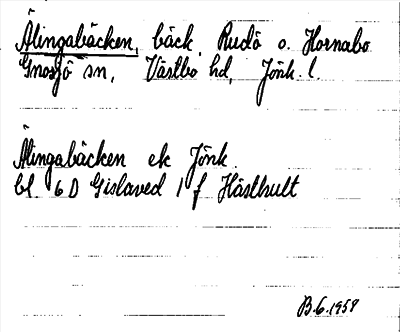 Älingabäcken, bäck, Rudö o. Hornabo
Gnosjö sn, Västbo hd, Jönk. l.
Älingabäcken ek Jönk.
bl. 6 D Gislaved 1 f Hästhult
B.6.1958